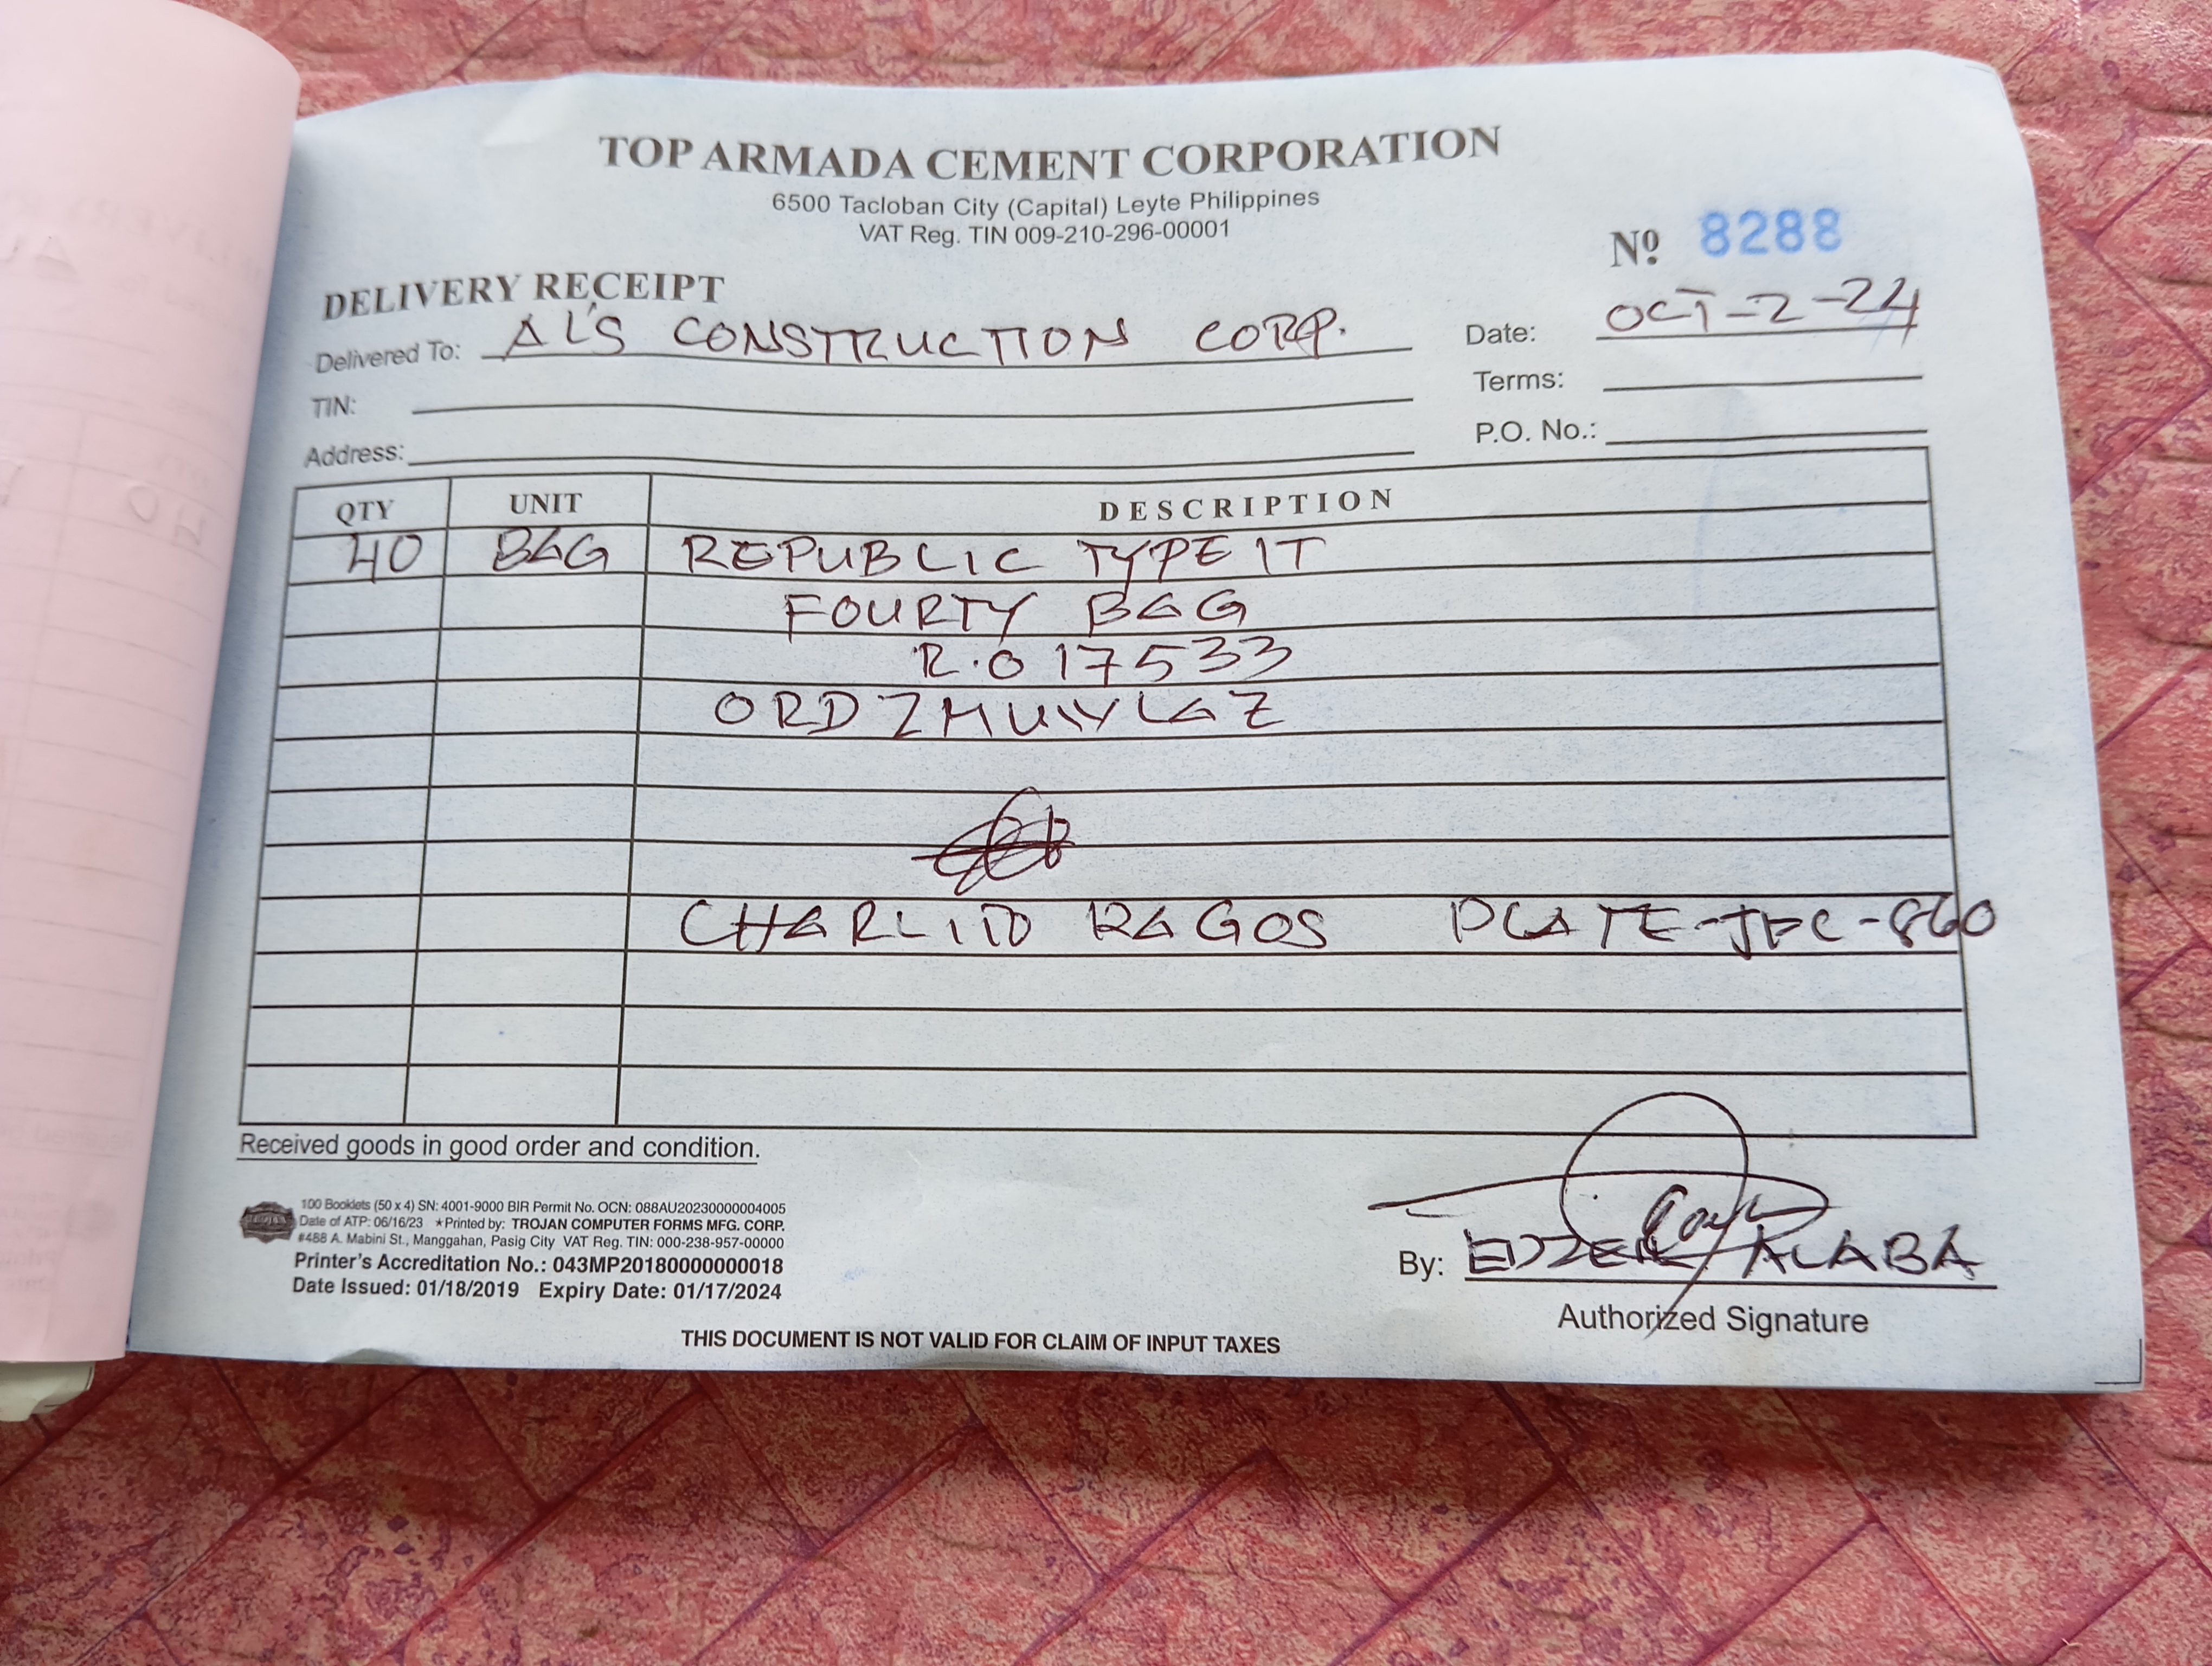 TOP ARMADA CEMENT CORPORATION
6500 Tacloban City (Capital) Leyte Philippines
VAT Reg. TIN 009-210-296-00001
Nº 8288
DELIVERY RECEIPT
Delivered To: AL'S CONSTRUCTION CORP.
Date: OCT-2-24
TIN:
Terms:
Address:
P.O. No.:
QTY UNIT DESCRIPTION
40 BAG REPUBLIC TYPE 1T
FOURTY BAG
R.O 17533
CHARLITO RAGOS PLATE
Received goods in good order and condition.
100 Booklets (50 x 4) SN: 4001-9000 BIR Permit No. OCN: 088AU20230000004005
Date of ATP: 06/16/23 ★Printed by: TROJAN COMPUTER FORMS MFG. CORP.
#488 A. Mabini St., Manggahan, Pasig City VAT Reg. TIN: 000-238-957-00000
Printer's Accreditation No.: 043MP20180000000018
Date Issued: 01/18/2019 Expiry Date: 01/17/2024
By: ALABA
Authorized Signature
THIS DOCUMENT IS NOT VALID FOR CLAIM OF INPUT TAXES